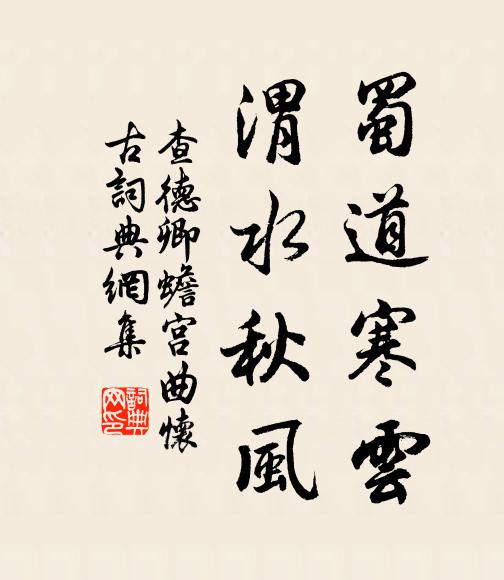 蜀道寒雲
渭水秋風
查德卿蟾宮曲懷
古詞典網集
詞典
网印